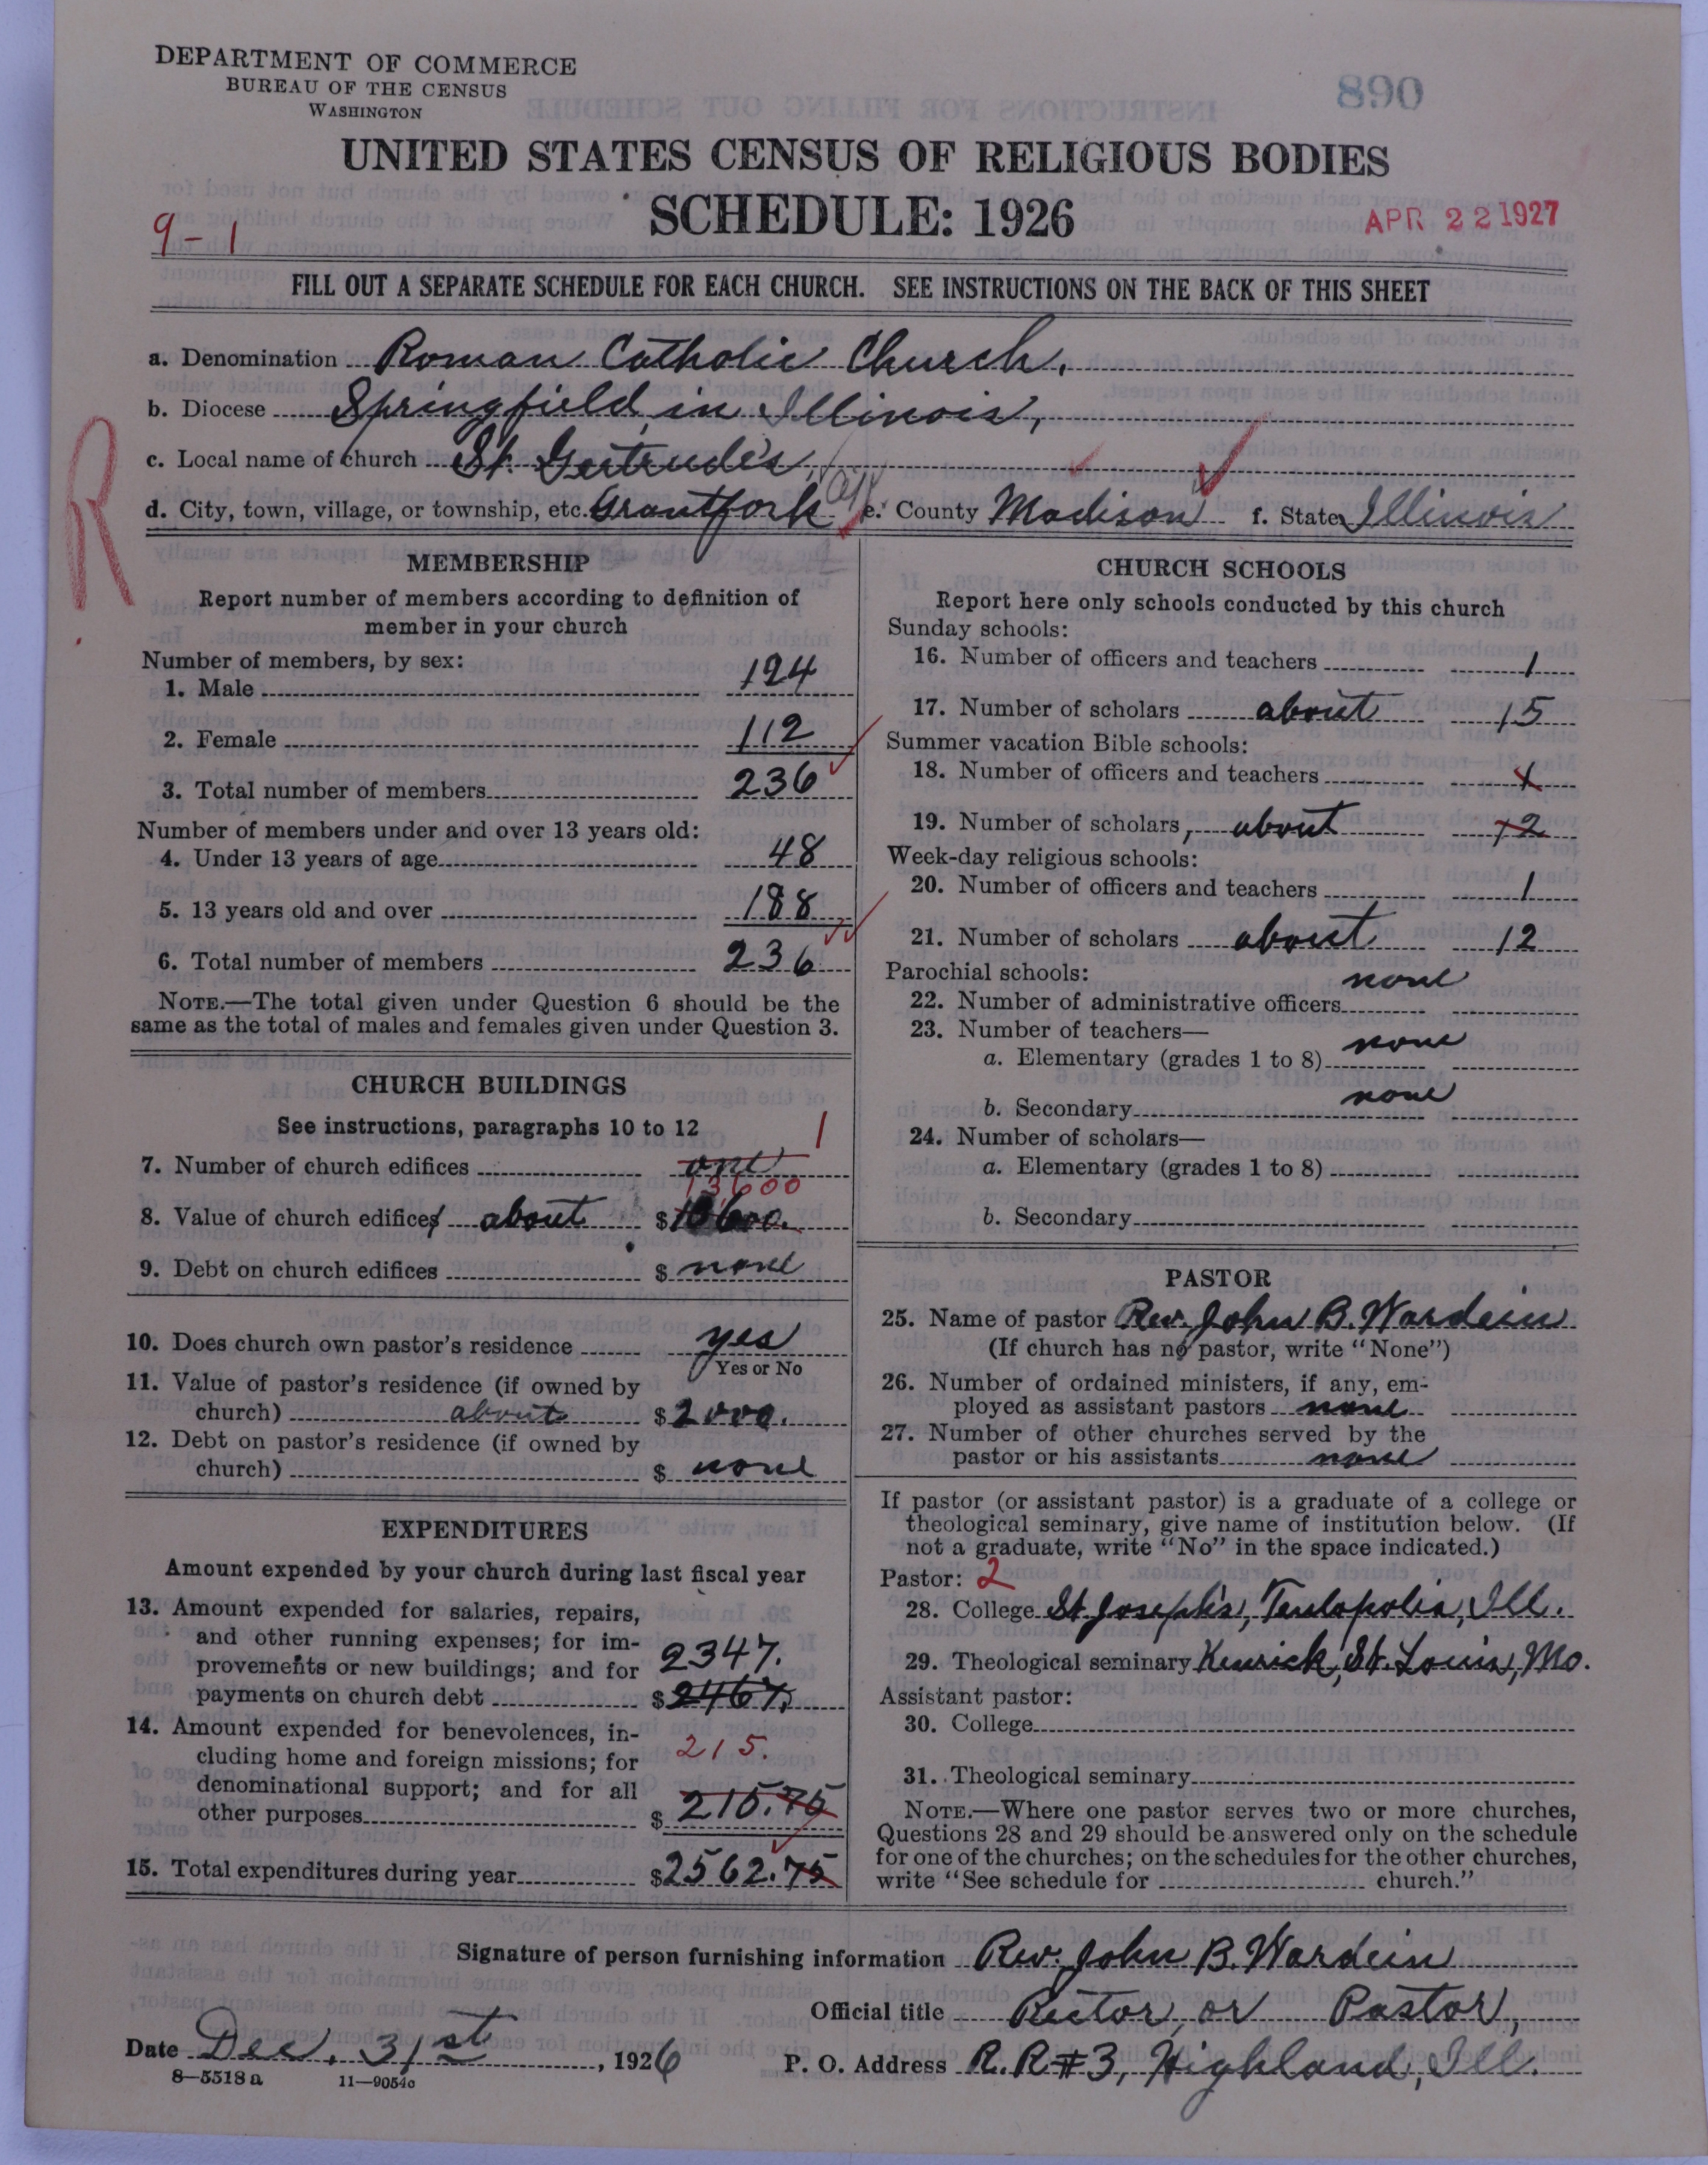 DEPARTMENT OF COMMERCE
BUREAU OF THE CENSUS
WASHINGTON
890
UNITED STATES CENSUS OF RELIGIOUS BODIES
SCHEDULE: 1926
9-1
APR 22 1927
FILL OUT A SEPARATE SCHEDULE FOR EACH CHURCH. SEE INSTRUCTIONS ON THE BACK OF THIS SHEET
a. Denomination Roman Catholic Church,
b. Diocese Springfield in Illinois,
c. Local name of church St. Gertrude's,
d. City, town, village, or township, etc. Grantfork e. County Madison f. State Illinois
R
MEMBERSHIP
Report number of members according to definition of
member in your church
Number of members, by sex:
1. Male 124
2. Female 112
3. Total number of members 236
Number of members under and over 13 years old:
4. Under 13 years of age 48
5. 13 years old and over 188
6. Total number of members 236
NOTE.—The total given under Question 6 should be the
same as the total of males and females given under Question 3.
CHURCH BUILDINGS
See instructions, paragraphs 10 to 12
7. Number of church edifices one 1
13600
8. Value of church edifices about $13600.
9. Debt on church edifices $ none
10. Does church own pastor's residence yes
Yes or No
11. Value of pastor's residence (if owned by
church) about $2000.
12. Debt on pastor's residence (if owned by
church) $ none
EXPENDITURES
Amount expended by your church during last fiscal year
13. Amount expended for salaries, repairs,
and other running expenses; for im-
provements or new buildings; and for 2347.
payments on church debt $2467.
14. Amount expended for benevolences, in-
cluding home and foreign missions; for 215.
denominational support; and for all
other purposes $ 215.75
15. Total expenditures during year $2562.75
CHURCH SCHOOLS
Report here only schools conducted by this church
Sunday schools:
16. Number of officers and teachers 1
17. Number of scholars about 15
Summer vacation Bible schools:
18. Number of officers and teachers 1
19. Number of scholars, about 12
Week-day religious schools:
20. Number of officers and teachers 1
21. Number of scholars about 12
Parochial schools:
22. Number of administrative officers none
23. Number of teachers—
a. Elementary (grades 1 to 8) none
b. Secondary none
24. Number of scholars—
a. Elementary (grades 1 to 8)
b. Secondary
PASTOR
25. Name of pastor Rev. John B. Wardein
(If church has no pastor, write "None")
26. Number of ordained ministers, if any, em-
ployed as assistant pastors none
27. Number of other churches served by the
pastor or his assistants none
If pastor (or assistant pastor) is a graduate of a college or
theological seminary, give name of institution below. (If
not a graduate, write "No" in the space indicated.)
Pastor: 2
28. College St Joseph's, Teutopolis, Ill.
29. Theological seminary Kenrick, St. Louis, Mo.
Assistant pastor:
30. College
31. Theological seminary
NOTE.—Where one pastor serves two or more churches,
Questions 28 and 29 should be answered only on the schedule
for one of the churches; on the schedules for the other churches,
write "See schedule for church."
Signature of person furnishing information Rev. John B. Wardein
Official title Rector, or Pastor,
Date Dec. 31st, 1926
P. O. Address R. R #3, Highland, Ill.
8—5518a 11—9054c